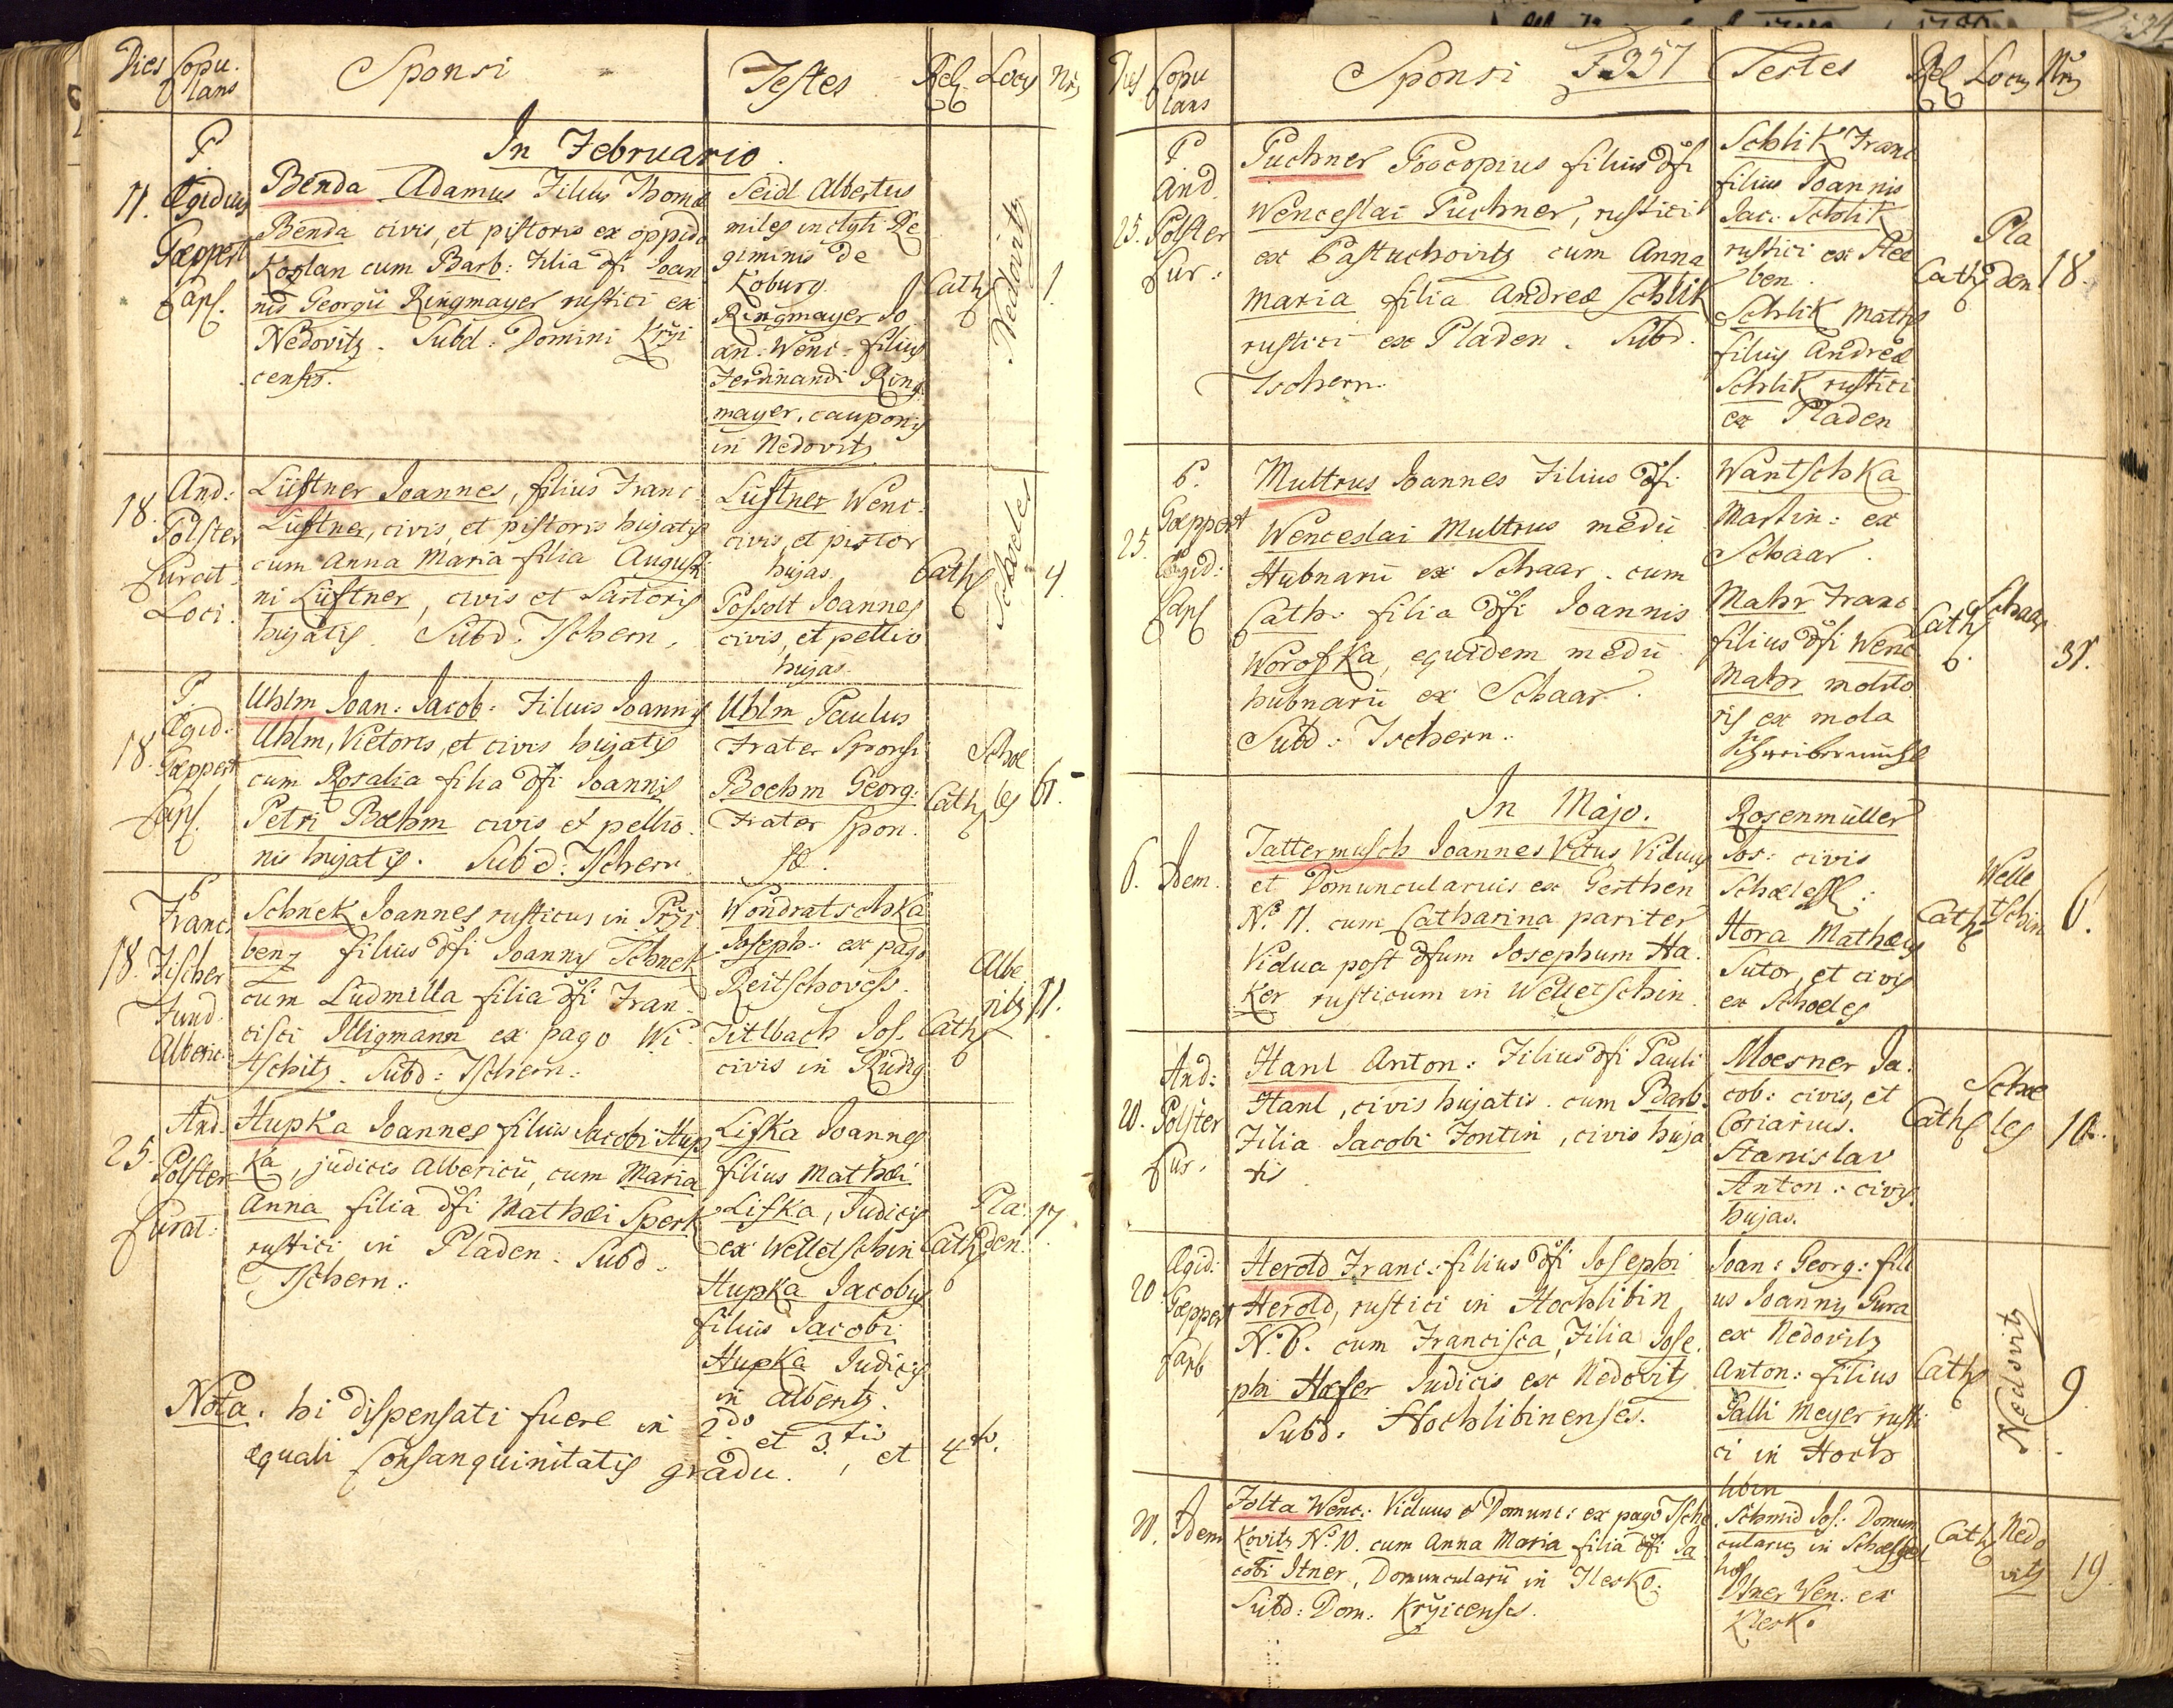 Dies Copu. Sponsi Testes Rel. Locus Nrus
lans
In Februario.
P.
11. Ægidius
Gœppert
Capl.
Benda Adamus Filius Thomæ
Benda civis, et pistoris ex oppido
Kozlan cum Barb: Filia dfi Joan
nis Georgii Ringmayer rustici ex
Nedovitz. Subd: Domini Kryi
censis.
Seidl Albertus
miles inclyti Re
giminis De
Koburg.
Ringmayer Jo
an: Wenc: filius
Ferdinandi Ring
mayer, cauponis
in Nedovitz
Cath
Nedovitz
1.
18.
And:
Polster
Curat
Loci.
Lüftner Joannes, filius Franc
Lüftner, civis, et pistoris hujatis
cum Anna Maria filia Augusti
ni Lüftner, civis et Sartoris
hujatis. Subd. Tschern,
Lüftner Wenc.
civis, et pistor
hujas.
Possolt Joannes
civis, et pellio
hujas.
Cath
Schæles
4.
P.
Ægid:
18. Gœppert
Capl.
Uhlm Joan: Jacob: Filius Joannis
Uhlm, Vietoris, et civis hujatis
cum Rosalia filia dfi Joannis
Petri Bœhm civis et pellio
nis hujatis. Subd: Tschern
Uhlm Paulus
Frater Sponsi
Boehm Georg:
Frater Spon.
sæ.
Cath
Schœ
les
61.
P
Franc.
18. Fischer
Fund.
Alberic.
Schnek Joannes rusticus in Przi
benz filius dfi Joannis Schnek
cum Ludmilla filia dfi Fran
cisci Illigmann ex pago Wi
tschitz. Subd: Tschern:
Wondratschka
Joseph: ex pago
Reitschovess.
Titlbach Jos.
civis in Rudig
Cath
Albe
ritz
11.
And.
25. Polster
Curat:
Hupka Joannes filius Jacobi Hup
ka, judicis Albericii, cum Maria
Anna filia dfi Mathæi Sperk
rustici in Pladen. Subd.
Tschern:
Liska Joannes
filius Mathæi
Liska, Judicis
ex Welletschin
Hupka Jacobus
filius Jacobi
Hupka Judicis
in Alberitz.
Cath
Pla:
den.
17.
Nota. hi dispensati fuere in 2do et 3tio, et 4to.
æquali Consanquinitatis gradu.
Dies Copu Sponsi F 357 Testes Rel Locus Nrus
lans
P
And.
25. Polster
Cur:
Puchner Procopius filius dfi
Wenceslai Puchner, rustici
ex Pastuchovitz cum Anna
Maria filia Andreæ Schlik
rustici ex Pladen. Subd.
Tschern.
Schlik Franc
filius Joannis
Jac: Schlik
rustici ex Ste
ben.
Schlik Maths
filius Andreæ
Schlik rustici
ex Pladen
Cath
Pla
den
18.
P.
Gœppert
25.
Ægid:
Capl
Multrus Joannes Filius dfi
Wenceslai Multrus medii
Hubnarii ex Schaar. cum
Cath: filia dfi Joannis
Worofka, equidem medii
hubnarii ex Schaar.
Subd: Tschern.
Wantschka
Martin: ex
Schaar.
Mahr Franc
filius dfi Wenc
Mahr molito
ris ex mola
Cath
Schaar
31.
In Majo.
6. Idem.
Tattermusch Joannes Vitus Viduus
et Domuncularius ex Gerthen
No. 11. cum Catharina pariter
Vidua post dfum Josephum Ha
ker rusticum in Welletschin.
Rosenmüller
Jos: civis
Schæless:
Hora Mathæus
Sutor, et civis
ex Schoeles
Cath
Welle
tschin
6.
And:
20. Polster
Cur.
Hanl Anton: Filius dfi Pauli
Hanl, civis hujatis. cum Barb.
Filia Jacobi Fontin, civis huja
tis
Moesner Ja.
cob: civis, et
Coriarius.
Stanislav
Anton: civis
hujas.
Cath
Schœ
les
10.
Ægid:
20.
Gœppert
Capl
Herold Franc: filius dfi Josephi
Herold, rustici in Hochlibin
N. 6. cum Francisca, Filia Jose
phi Hæfer Judicis ex Nedovitz
Subd. Hochlibinenses.
Joan: Georg: fili
us Joannis Gura
ex Nedovitz
Anton: filius
Galli Meyer rusti
ci in Hoch
libin
Cath
Nedovitz
9.
20. Idem
Folta Wenc: Viduus et Domunc: ex pago Tsche
kovitz No. 10. cum Anna Maria filia dfi Ja
cobi Itner, Domuncularii in Klesko:
Subd: Dom: Kryicenses.
Schmid Jos: Domun
cularius in Schafgel
hof
Itner Wen. ex
Klesko
Cath
Nedo
vitz
19.